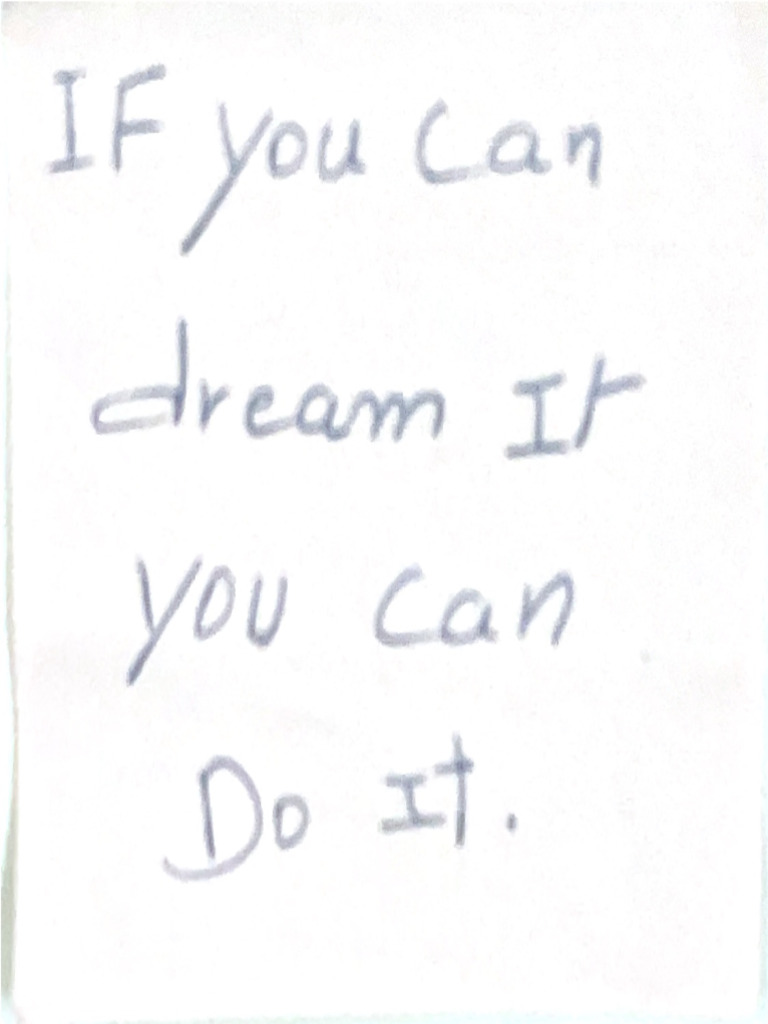 IF you can
dream It
you can
Do It.